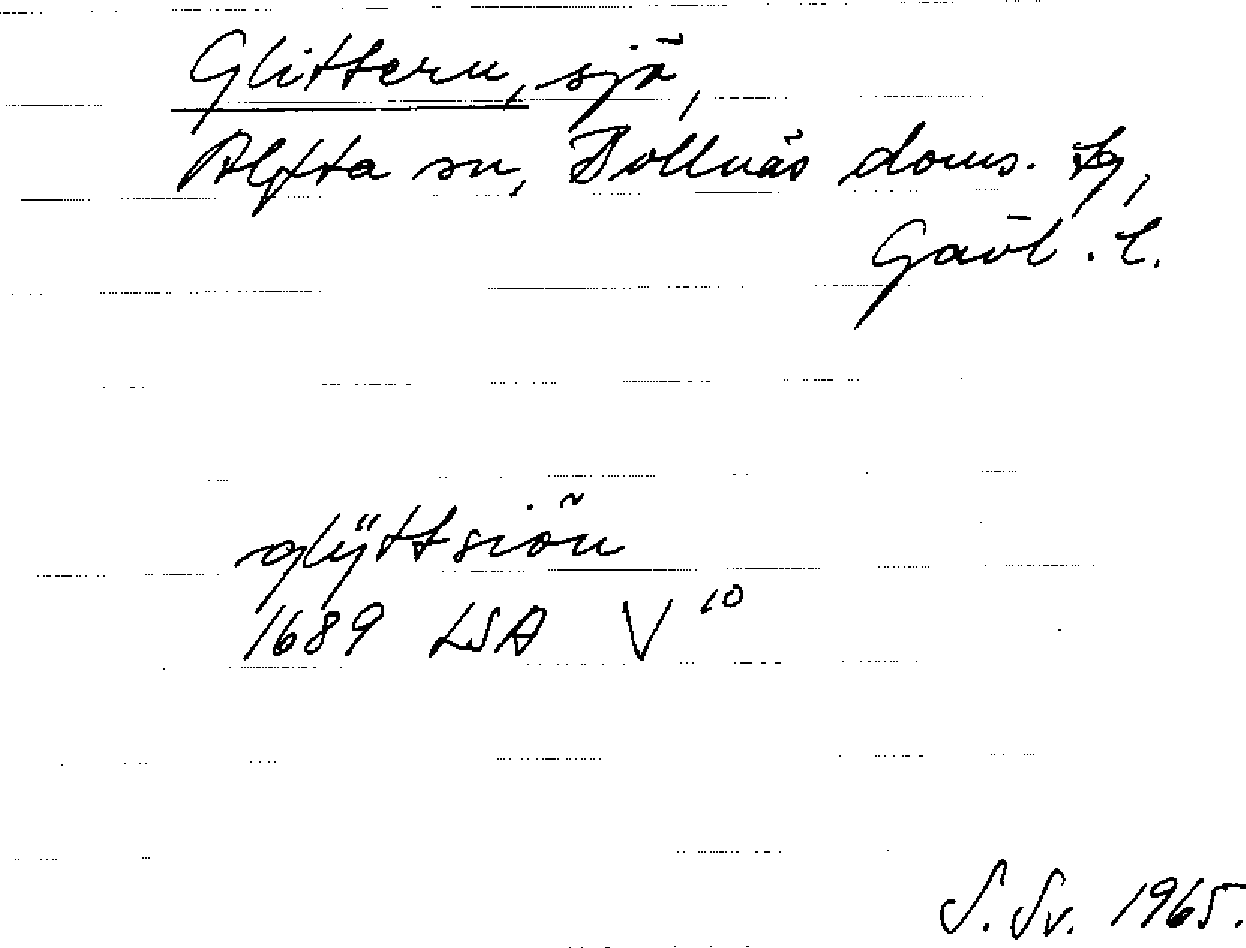 Glittern, sjö,
Alfta sn, Bollnäs doms. tg,
Gävl. l.
glÿttsiön
1689 LSA V 10
S. Sv. 1965.